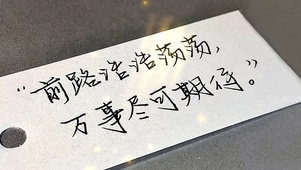 “前路浩浩荡荡，
万事尽可期待。”